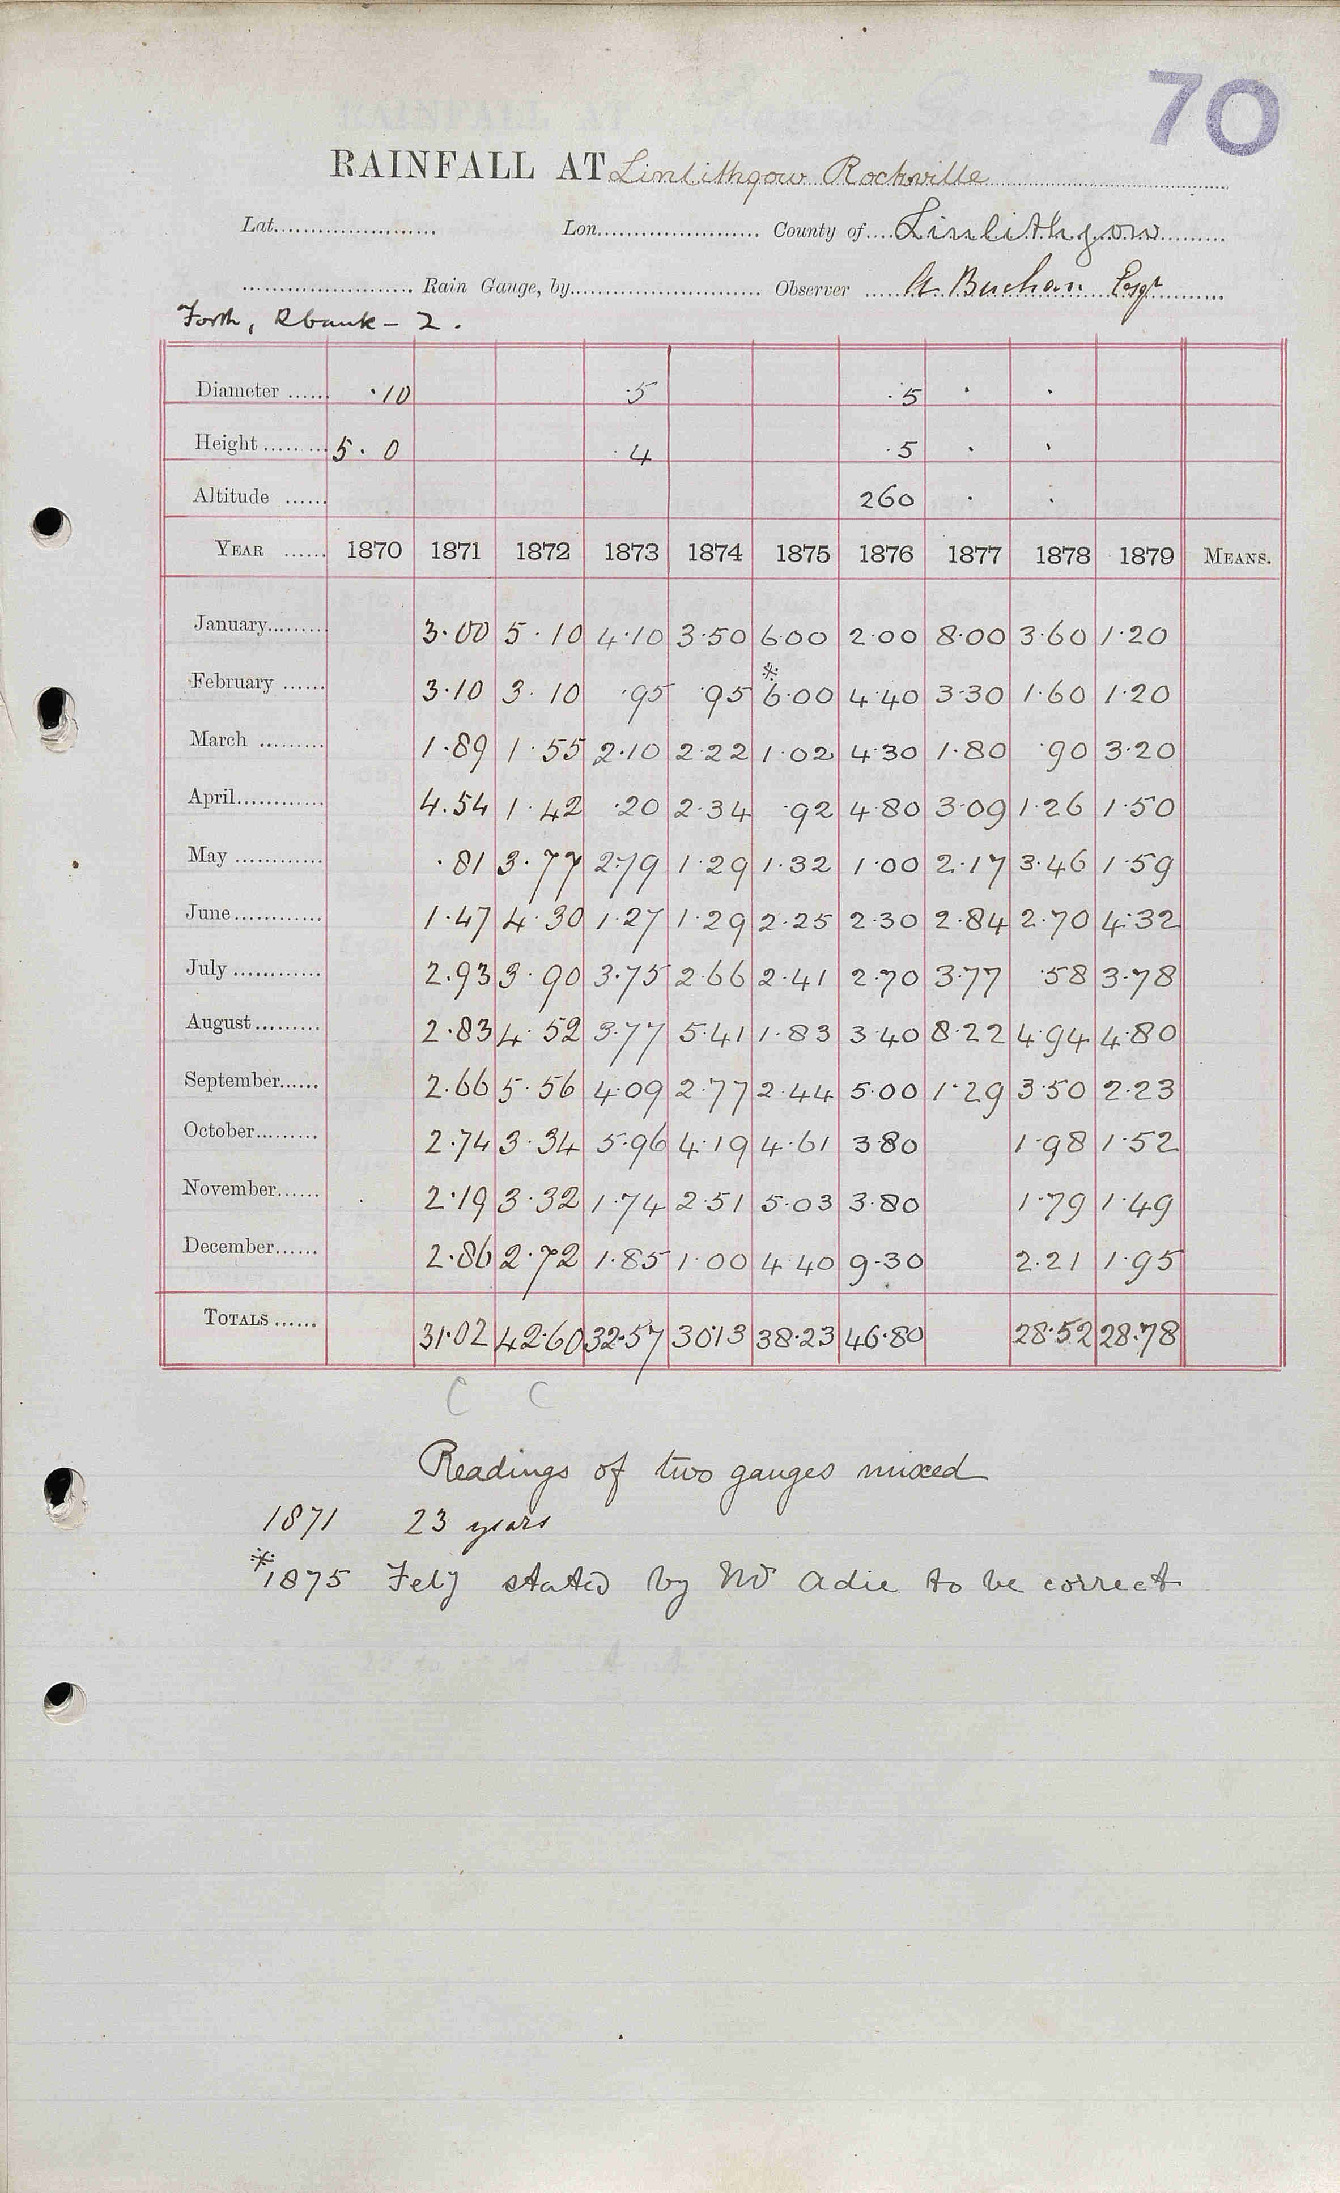 70
RAINFALL AT Linlithgow Rockville
Lat. Lon. County of Linlithgow
Rain Gauge, by Observer A. Buchan Esqr
Forth, Rbank - 2.
Diameter ·10 ·5 ·5 · ·
Height 5·0 ·4 ·5 · ·
Altitude 260 · ·
YEAR 1870 1871 1872 1873 1874 1875 1876 1877 1878 1879 MEANS.
January 3·00 5·10 4·10 3·50 6·00 2·00 8·00 3·60 1·20
February 3·10 3·10 ·95 ·95 *6·00 4·40 3·30 1·60 1·20
March 1·89 1·55 2·10 2·22 1·02 4·30 1·80 ·90 3·20
April 4·54 1·42 ·20 2·34 ·92 4·80 3·09 1·26 1·50
May ·81 3·77 2·79 1·29 1·32 1·00 2·17 3·46 1·59
June 1·47 4·30 1·27 1·29 2·25 2·30 2·84 2·70 4·32
July 2·93 3·90 3·75 2·66 2·41 2·70 3·77 ·58 3·78
August 2·83 4·52 3·77 5·41 1·83 3·40 8·22 4·94 4·80
September 2·66 5·56 4·09 2·77 2·44 5·00 1·29 3·50 2·23
October 2·74 3·34 5·96 4·19 4·61 3·80 1·98 1·52
November 2·19 3·32 1·74 2·51 5·03 3·80 1·79 1·49
December 2·86 2·72 1·85 1·00 4·40 9·30 2·21 1·95
TOTALS 31·02 42·60 32·57 30·13 38·23 46·80 28·52 28·78
C C
Readings of two gauges mixed
1871 23 years
*1875 Feby stated by Mr Adie to be correct